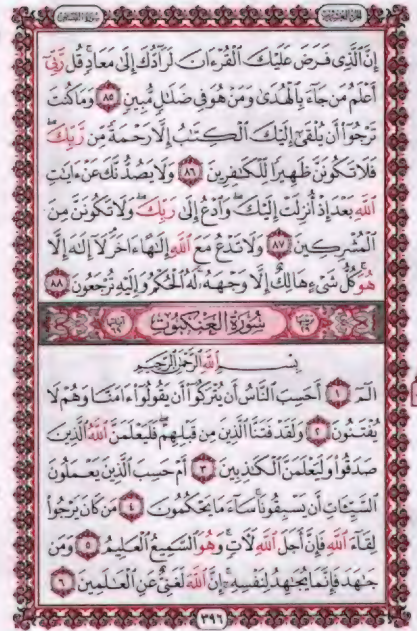 الجزء العشرون
سورة القصص
إِنَّ ٱلَّذِى فَرَضَ عَلَيْكَ ٱلْقُرْءَانَ لَرَآدُّكَ إِلَىٰ مَعَادٍ قُل رَّبِّىٓ
أَعْلَمُ مَن جَآءَ بِٱلْهُدَىٰ وَمَنْ هُوَ فِى ضَلَـٰلٍ مُّبِينٍ ٨٥ وَمَا كُنتَ
تَرْجُوٓا۟ أَن يُلْقَىٰٓ إِلَيْكَ ٱلْكِتَـٰبُ إِلَّا رَحْمَةً مِّن رَّبِّكَ ۖ
فَلَا تَكُونَنَّ ظَهِيرًا لِّلْكَـٰفِرِينَ ٨٦ وَلَا يَصُدُّنَّكَ عَنْ ءَايَـٰتِ
ٱللَّهِ بَعْدَ إِذْ أُنزِلَتْ إِلَيْكَ ۖ وَٱدْعُ إِلَىٰ رَبِّكَ ۖ وَلَا تَكُونَنَّ مِنَ
ٱلْمُشْرِكِينَ ٨٧ وَلَا تَدْعُ مَعَ ٱللَّهِ إِلَـٰهًا ءَاخَرَ ۘ لَآ إِلَـٰهَ إِلَّا
هُوَ ۚ كُلُّ شَىْءٍ هَالِكٌ إِلَّا وَجْهَهُۥ ۚ لَهُ ٱلْحُكْمُ وَإِلَيْهِ تُرْجَعُونَ ٨٨
سُورَةُ الْعَنْكَبُوتِ
بِسْمِ ٱللَّهِ ٱلرَّحْمَـٰنِ ٱلرَّحِيمِ
الٓمٓ ١ أَحَسِبَ ٱلنَّاسُ أَن يُتْرَكُوٓا۟ أَن يَقُولُوٓا۟ ءَامَنَّا وَهُمْ لَا
يُفْتَنُونَ ٢ وَلَقَدْ فَتَنَّا ٱلَّذِينَ مِن قَبْلِهِمْ ۖ فَلَيَعْلَمَنَّ ٱللَّهُ ٱلَّذِينَ
صَدَقُوا۟ وَلَيَعْلَمَنَّ ٱلْكَـٰذِبِينَ ٣ أَمْ حَسِبَ ٱلَّذِينَ يَعْمَلُونَ
ٱلسَّيِّـَٔاتِ أَن يَسْبِقُونَا ۚ سَآءَ مَا يَحْكُمُونَ ٤ مَن كَانَ يَرْجُوا۟
لِقَآءَ ٱللَّهِ فَإِنَّ أَجَلَ ٱللَّهِ لَـَٔاتٍ ۚ وَهُوَ ٱلسَّمِيعُ ٱلْعَلِيمُ ٥ وَمَن
جَـٰهَدَ فَإِنَّمَا يُجَـٰهِدُ لِنَفْسِهِۦٓ ۚ إِنَّ ٱللَّهَ لَغَنِىٌّ عَنِ ٱلْعَـٰلَمِينَ ٦
٣٩٦